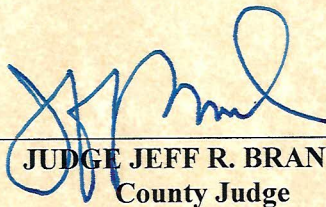 JUDGE JEFF R. BRAN
County Judge